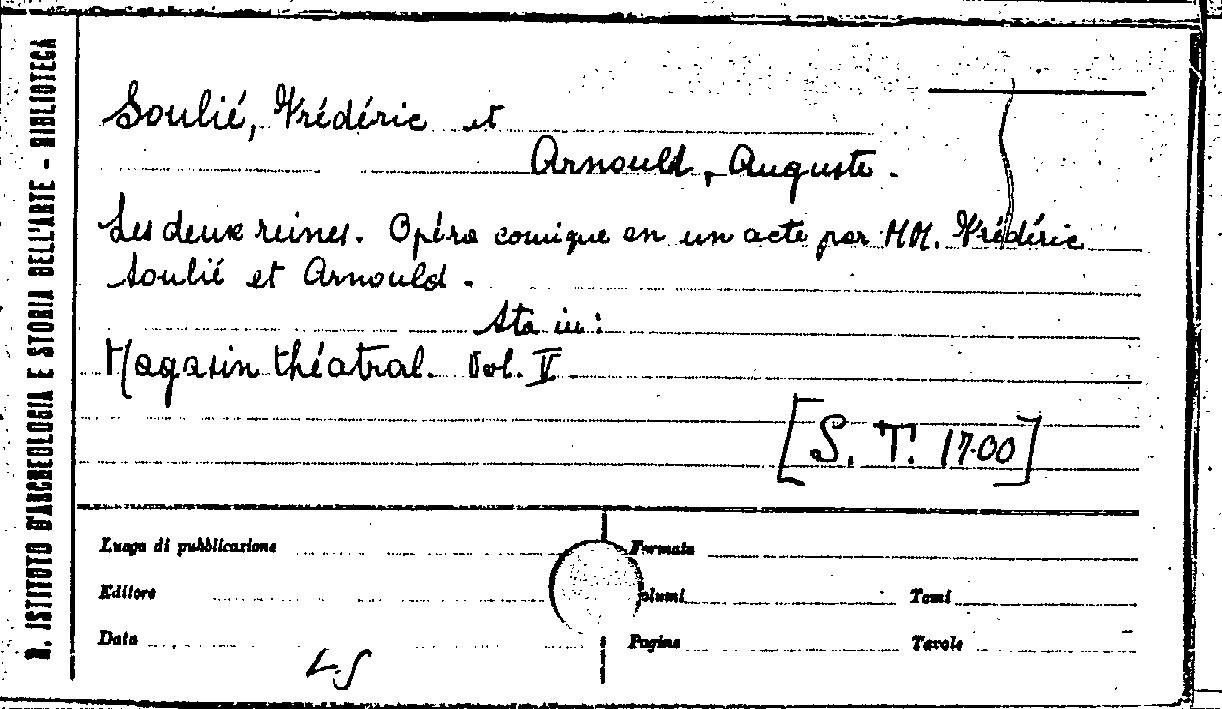 R. ISTITUTO D'ARCHEOLOGIA E STORIA DELL'ARTE - BIBLIOTECA
Soulié, Frédéric et
Arnould, Auguste.
Les deux reines. Opéra comique en un acte par MM. Frédéric
Soulié et Arnould.
Sta in:
Magasin théatral. Vol. V
[S. T. 1700]
Luogo di pubblicazione
Formato
Editore
olumi
Tomi
Data
Pagine
Tavole